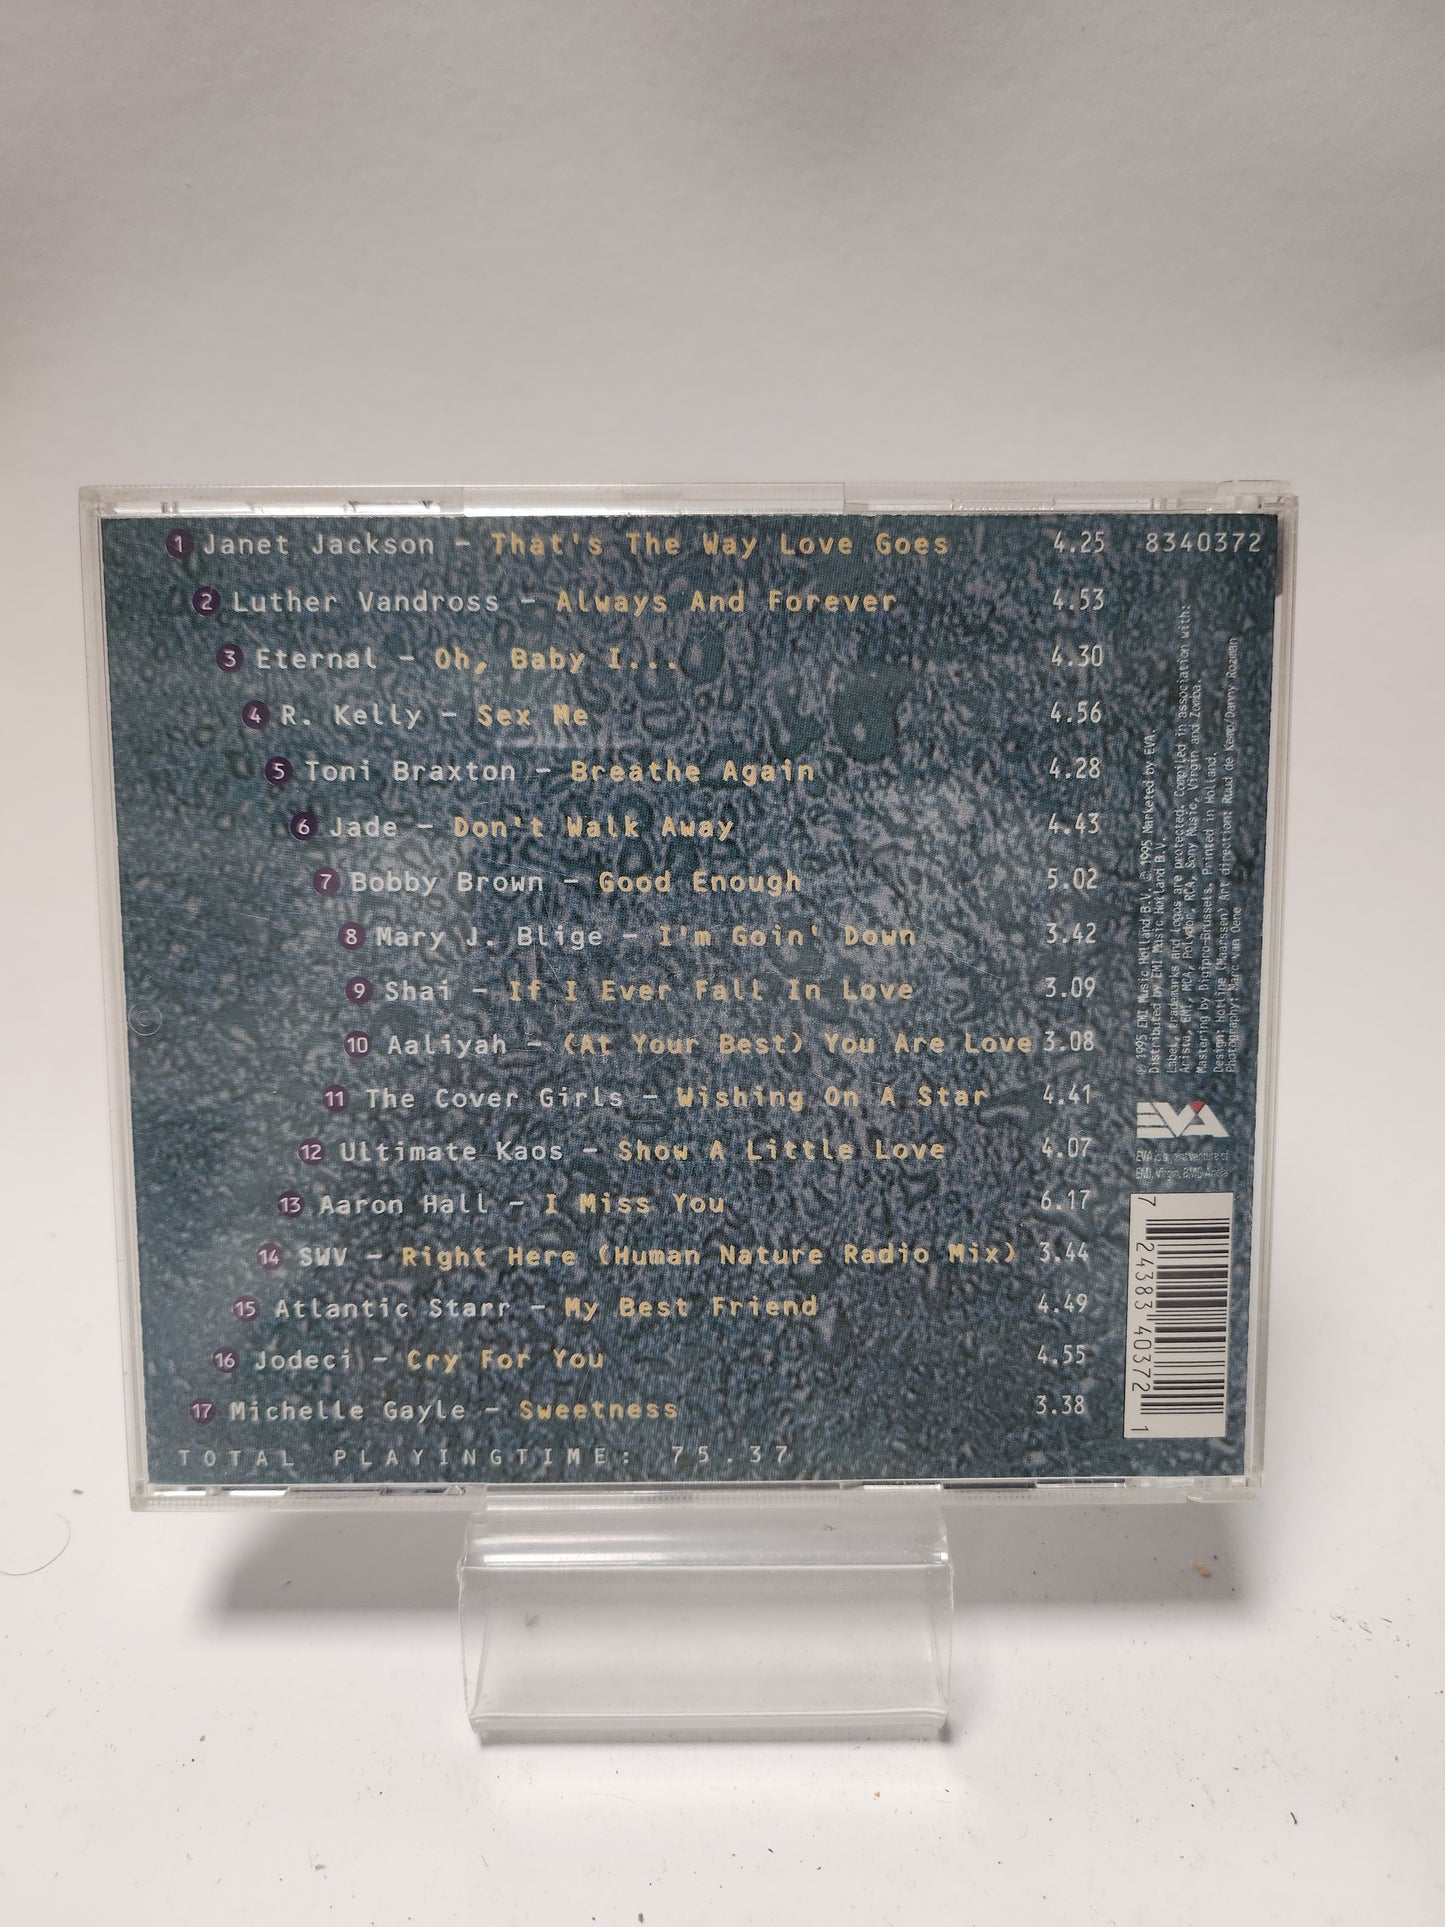 1 Janet Jackson - That's The Way Love Goes 4.25
2 Luther Vandross - Always And Forever 4.53
3 Eternal - Oh, Baby I... 4.30
4 R. Kelly - Sex Me 4.56
5 Toni Braxton - Breathe Again 4.28
6 Jade - Don't Walk Away 4.43
7 Bobby Brown - Good Enough 5.02
8 Mary J. Blige - I'm Goin' Down 3.42
9 Shai - If I Ever Fall In Love 3.09
10 Aaliyah - (At Your Best) You Are Love 3.08
11 The Cover Girls - Wishing On A Star 4.41
12 Ultimate Kaos - Show A Little Love 4.07
13 Aaron Hall - I Miss You 6.17
14 SWV - Right Here (Human Nature Radio Mix) 3.44
15 Atlantic Starr - My Best Friend 4.49
16 Jodeci - Cry For You 4.55
17 Michelle Gayle - Sweetness 3.38
TOTAL PLAYINGTIME: 75.37
8340372
℗ 1995 EMI Music Holland B.V. © 1995 Marketed by EVA.
Distributed by EMI Music Holland B.V.
Label, trademarks and logos are protected. Compiled in association with:
Arista, EMI, MCA, Polydor, RCA, Sony Music, Virgin and Zomba.
Mastering by Digipro-Brussels. Printed in Holland.
Design: Hotline (Maarssen) Art direction: Ruud de Kemp/Danny Rozman
Photography: Marc van Oene
EVA
EVA is a joint venture of
EMI, Virgin, BMG Ariola
7 24383 40372 1